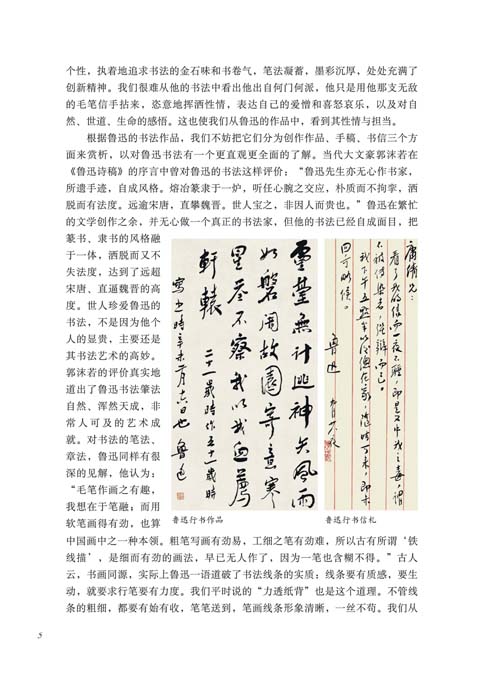 个性，执着地追求书法的金石味和书卷气，笔法凝蓄，墨彩沉厚，处处充满了
创新精神。我们很难从他的书法中看出他出自何门何派，他只是用他那支无敌
的毛笔信手拈来，恣意地挥洒性情，表达自己的爱憎和喜怒哀乐，以及对自
然、世道、生命的感悟。这也使我们从鲁迅的作品中，看到其性情与担当。
根据鲁迅的书法作品，我们不妨把它们分为创作作品、手稿、书信三个方
面来赏析，以对鲁迅书法有一个更直观更全面的了解。当代大文豪郭沫若在
《鲁迅诗稿》的序言中曾对鲁迅的书法这样评价：“鲁迅先生亦无心作书家，
所遗手迹，自成风格。熔冶篆隶于一炉，听任心腕之交应，朴质而不拘挛，洒
脱而有法度。远逾宋唐，直攀魏晋。世人宝之，非因人而贵也。”鲁迅在繁忙
的文学创作之余，并无心做一个真正的书法家，但他的书法已经自成面目，把
篆书、隶书的风格融
于一体，洒脱而又不
失法度，达到了远超
宋唐、直逼魏晋的高
度。世人珍爱鲁迅的
书法，不是因为他个
人的显贵，主要还是
其书法艺术的高妙。
郭沫若的评价真实地
道出了鲁迅书法肇法
自然、浑然天成，非
常人可及的艺术成
就。对书法的笔法、
章法，鲁迅同样有很
深的见解，他认为：
“毛笔作画之有趣，
我想在于笔融；而用
软笔画得有劲，也算
中国画中之一种本领。粗笔写画有劲易，工细之笔有劲难，所以古有所谓‘铁
线描’，是细而有劲的画法，早已无人作了，因为一笔也含糊不得。”古人
云，书画同源，实际上鲁迅一语道破了书法线条的实质：线条要有质感，要生
动，就要求行笔要有力度。我们平时说的“力透纸背”也是这个道理。不管线
条的粗细，都要有始有收，笔笔送到，笔画线条形象清晰，一丝不苟。我们从
靈臺無计逃神矢風雨
如磐闇故園寄意寒
星荃不察我以我血薦
軒轅
二十一歲時作五十一歲時
寫之時辛未二月十六日也 魯迅
鲁迅行书作品
魯迅
鲁迅行书信札
5